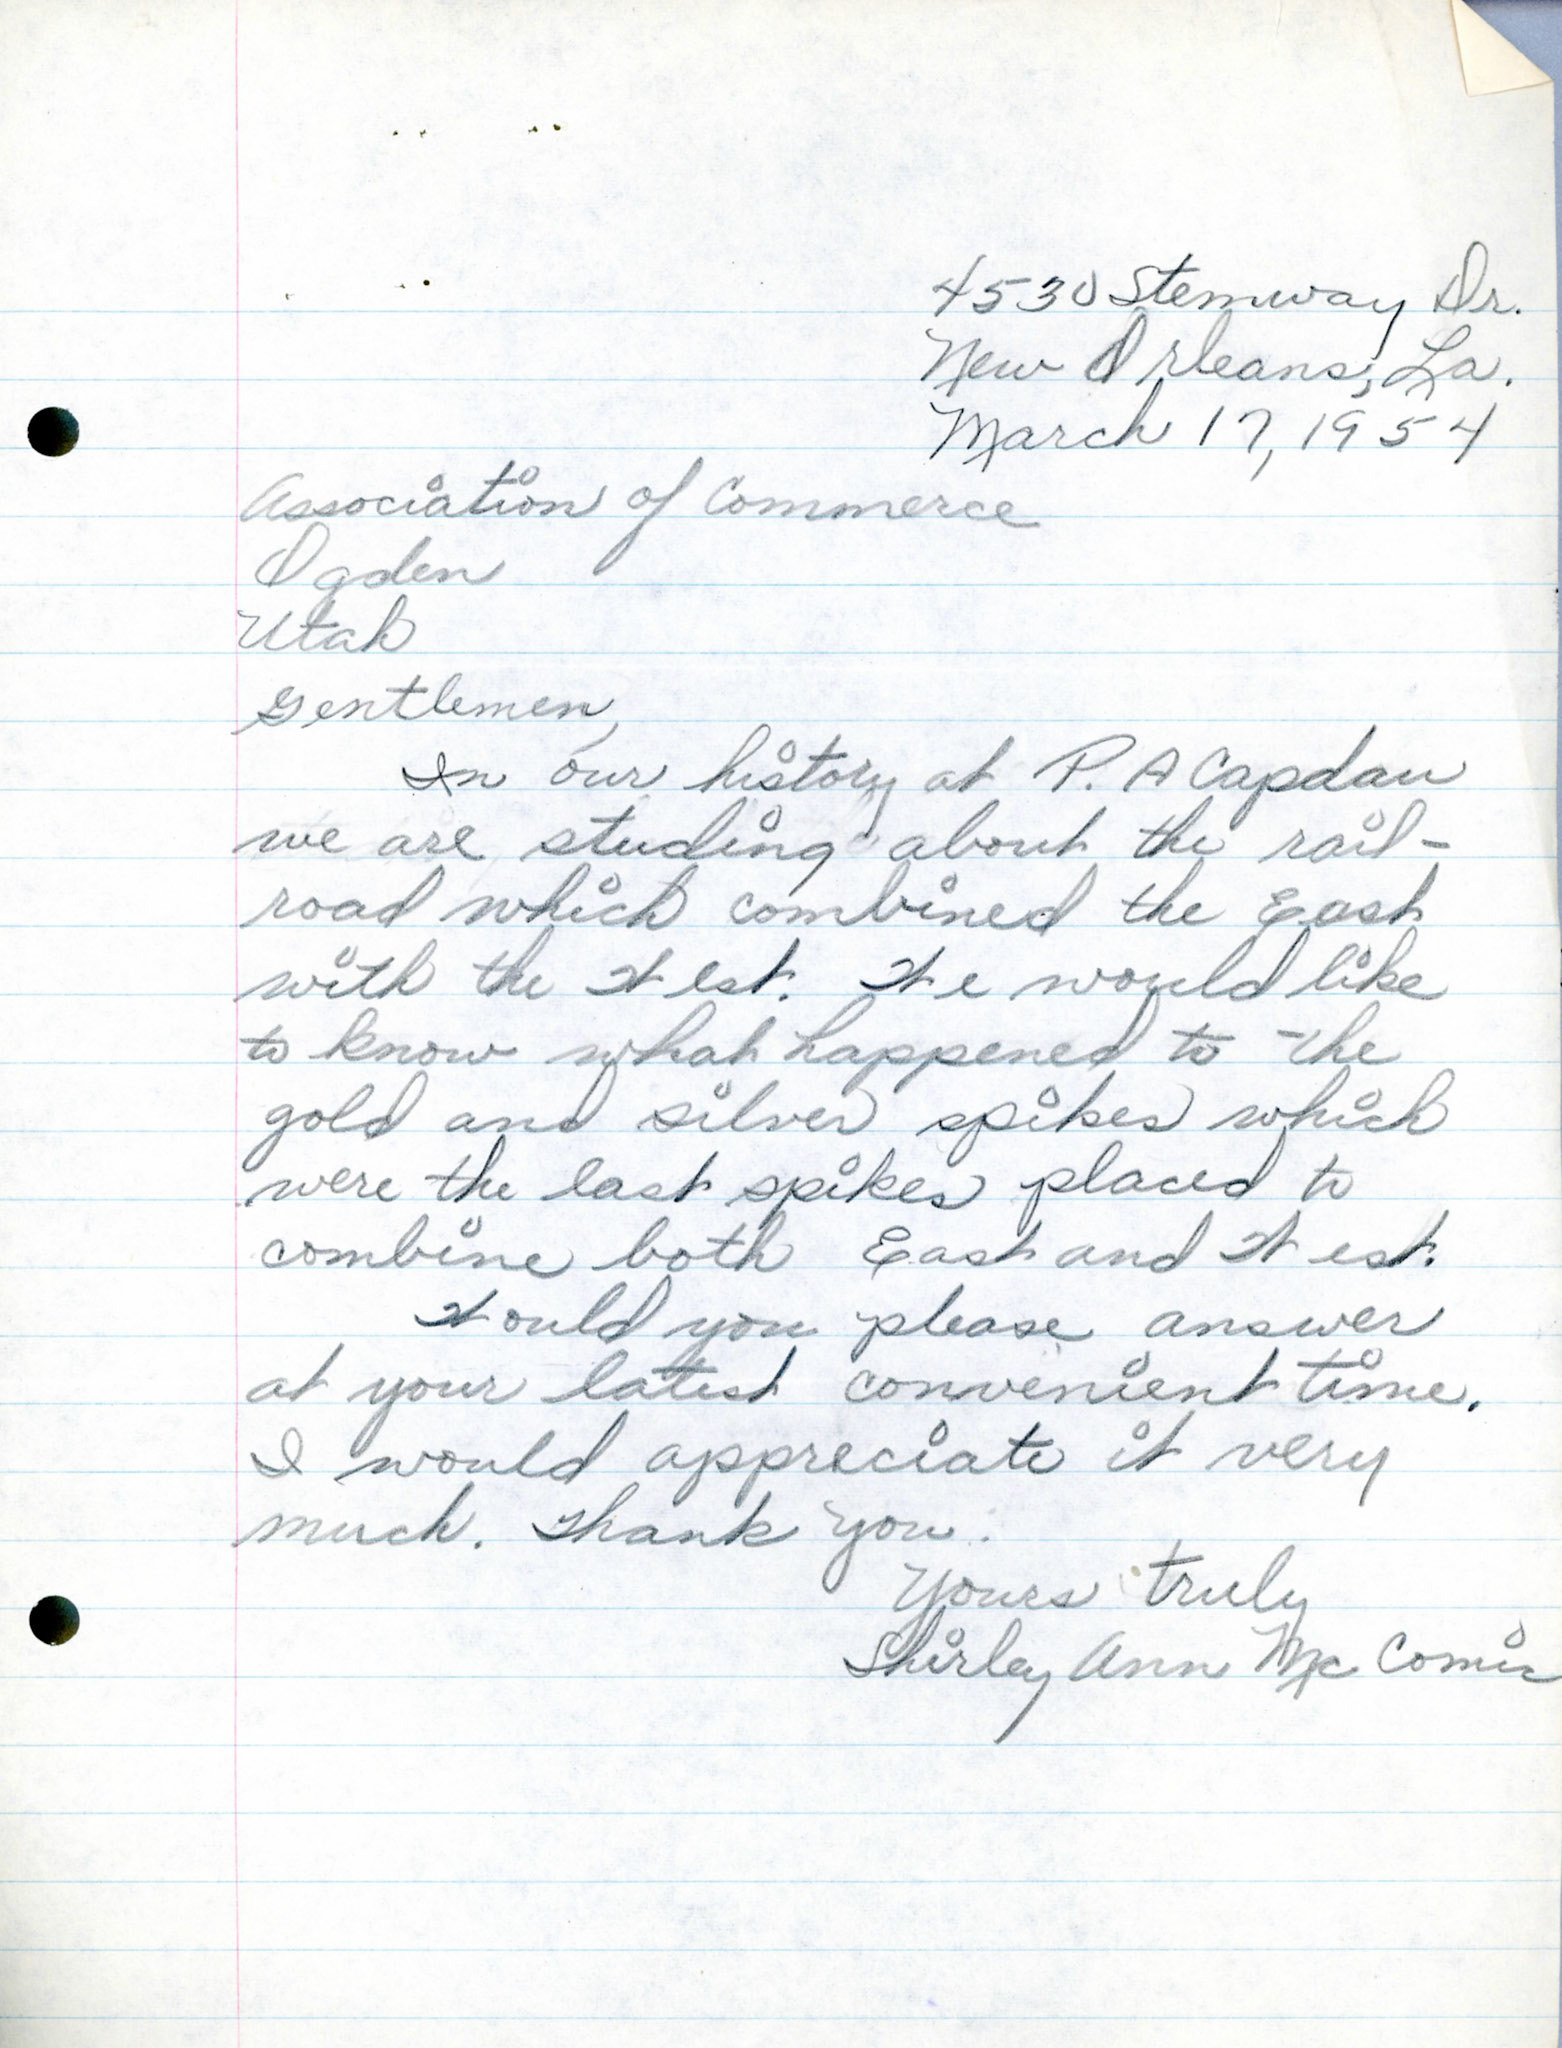 4530 Stemway Dr.
New Orleans, La.
March 17, 1954
Association of Commerce
Ogden
Utah
Gentlemen,
In our history at P. A Capdau
we are studing about the rail-
road which combined the East
with the West. We would like
to know what happened to the
gold and silver spikes which
were the last spikes placed to
combine both East and West.
Would you please answer
at your latest convenient time.
I would appreciate it very
much. Thank you.
Yours truly
Shirley Ann Mc Comic